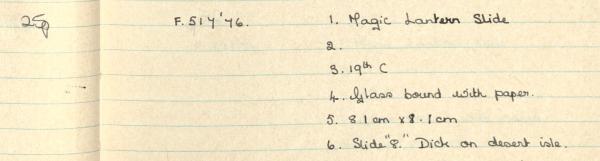 F. 517'76. 1. Magic Lantern Slide
2.
3. 19th C
4. Glass bound with paper.
5. 8.1 cm x 8.1 cm
6. Slide "8." Dick on desert isle.